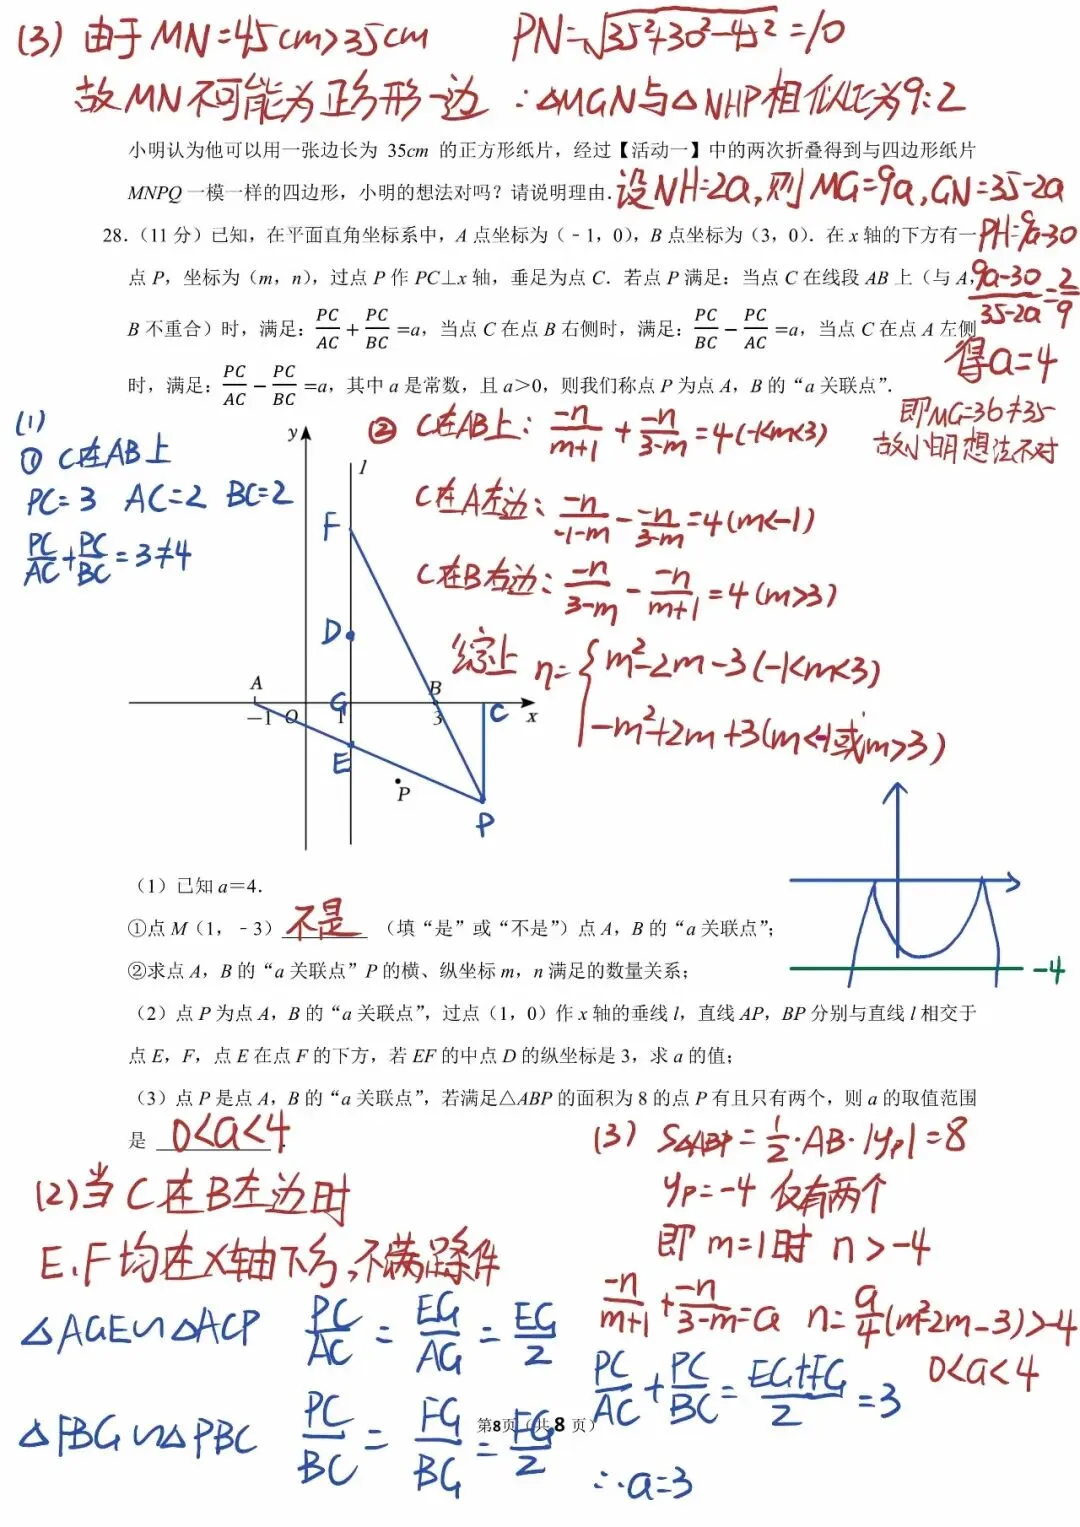 (3) 由于MN=45cm>35cm PN=√35²+30²-45²=10
故MN不可能为正方形一边 ∴△MGN与△NHP相似比为9:2
小明认为他可以用一张边长为 35cm 的正方形纸片，经过【活动一】中的两次折叠得到与四边形纸片
MNPQ 一模一样的四边形，小明的想法对吗？请说明理由.
设NH=2a,则MG=9a,GN=35-2a
PH=9a-30
28.（11 分）已知，在平面直角坐标系中，A 点坐标为（﹣1，0），B 点坐标为（3，0）．在 x 轴的下方有一
点 P，坐标为（m，n），过点 P 作 PC⊥x 轴，垂足为点 C．若点 P 满足：当点 C 在线段 AB 上（与 A，
B 不重合）时，满足：PC/AC + PC/BC =a，当点 C 在点 B 右侧时，满足：PC/BC − PC/AC =a，当点 C 在点 A 左侧
时，满足：PC/AC − PC/BC =a，其中 a 是常数，且 a＞0，则我们称点 P 为点 A，B 的“a 关联点”．
9a-30/35-2a=2/9
得a=4
即MG=36≠35
故小明想法不对
(1)
① C在AB上
PC=3 AC=2 BC=2
PC/AC+PC/BC=3≠4
② C在AB上: -n/m+1 + -n/3-m=4(-1<m<3)
C在A左边: -n/-1-m - -n/3-m=4(m<-1)
C在B右边: -n/3-m - -n/m+1=4(m>3)
综上 n={m²-2m-3(-1<m<3)
-m²+2m+3(m<-1或m>3)
y
l
F
D
A
G
B
C
-1
O
1
3
x
E
P
P
-4
（1）已知 a＝4．
①点 M（1，﹣3） 不是 （填“是”或“不是”）点 A，B 的“a 关联点”；
②求点 A，B 的“a 关联点”P 的横、纵坐标 m，n 满足的数量关系；
（2）点 P 为点 A，B 的“a 关联点”，过点（1，0）作 x 轴的垂线 l，直线 AP，BP 分别与直线 l 相交于
点 E，F，点 E 在点 F 的下方，若 EF 的中点 D 的纵坐标是 3，求 a 的值；
（3）点 P 是点 A，B 的“a 关联点”，若满足△ABP 的面积为 8 的点 P 有且只有两个，则 a 的取值范围
是 0<a<4 ．
(3) S△ABP=1/2·AB·|yp|=8
yp=-4 仅有两个
即 m=1时 n>-4
-n/m+1+-n/3-m=a n=a/4(m²-2m-3)>-4
0<a<4
(2)当C在B左边时
E、F均在X轴下方,不满足条件
△AGE∽△ACP PC/AC=EG/AG=EG/2
△FBG∽△PBC PC/BC=FG/BG=FG/2
PC/AC+PC/BC=EG+FG/2=3
∴a=3
第8页（共 8 页）